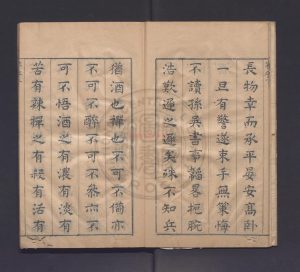 長物幸而承平晏安高卧
一旦有警遂束手無策悔
不讀孫吳書韜畧扼腕
浩歎遲之遲矣殊不知兵
猶酒也禪也不可不備亦
不可不醉不可不參亦不
可不悟酒之有濃有淡有
苦有辣禪之有殺有活有